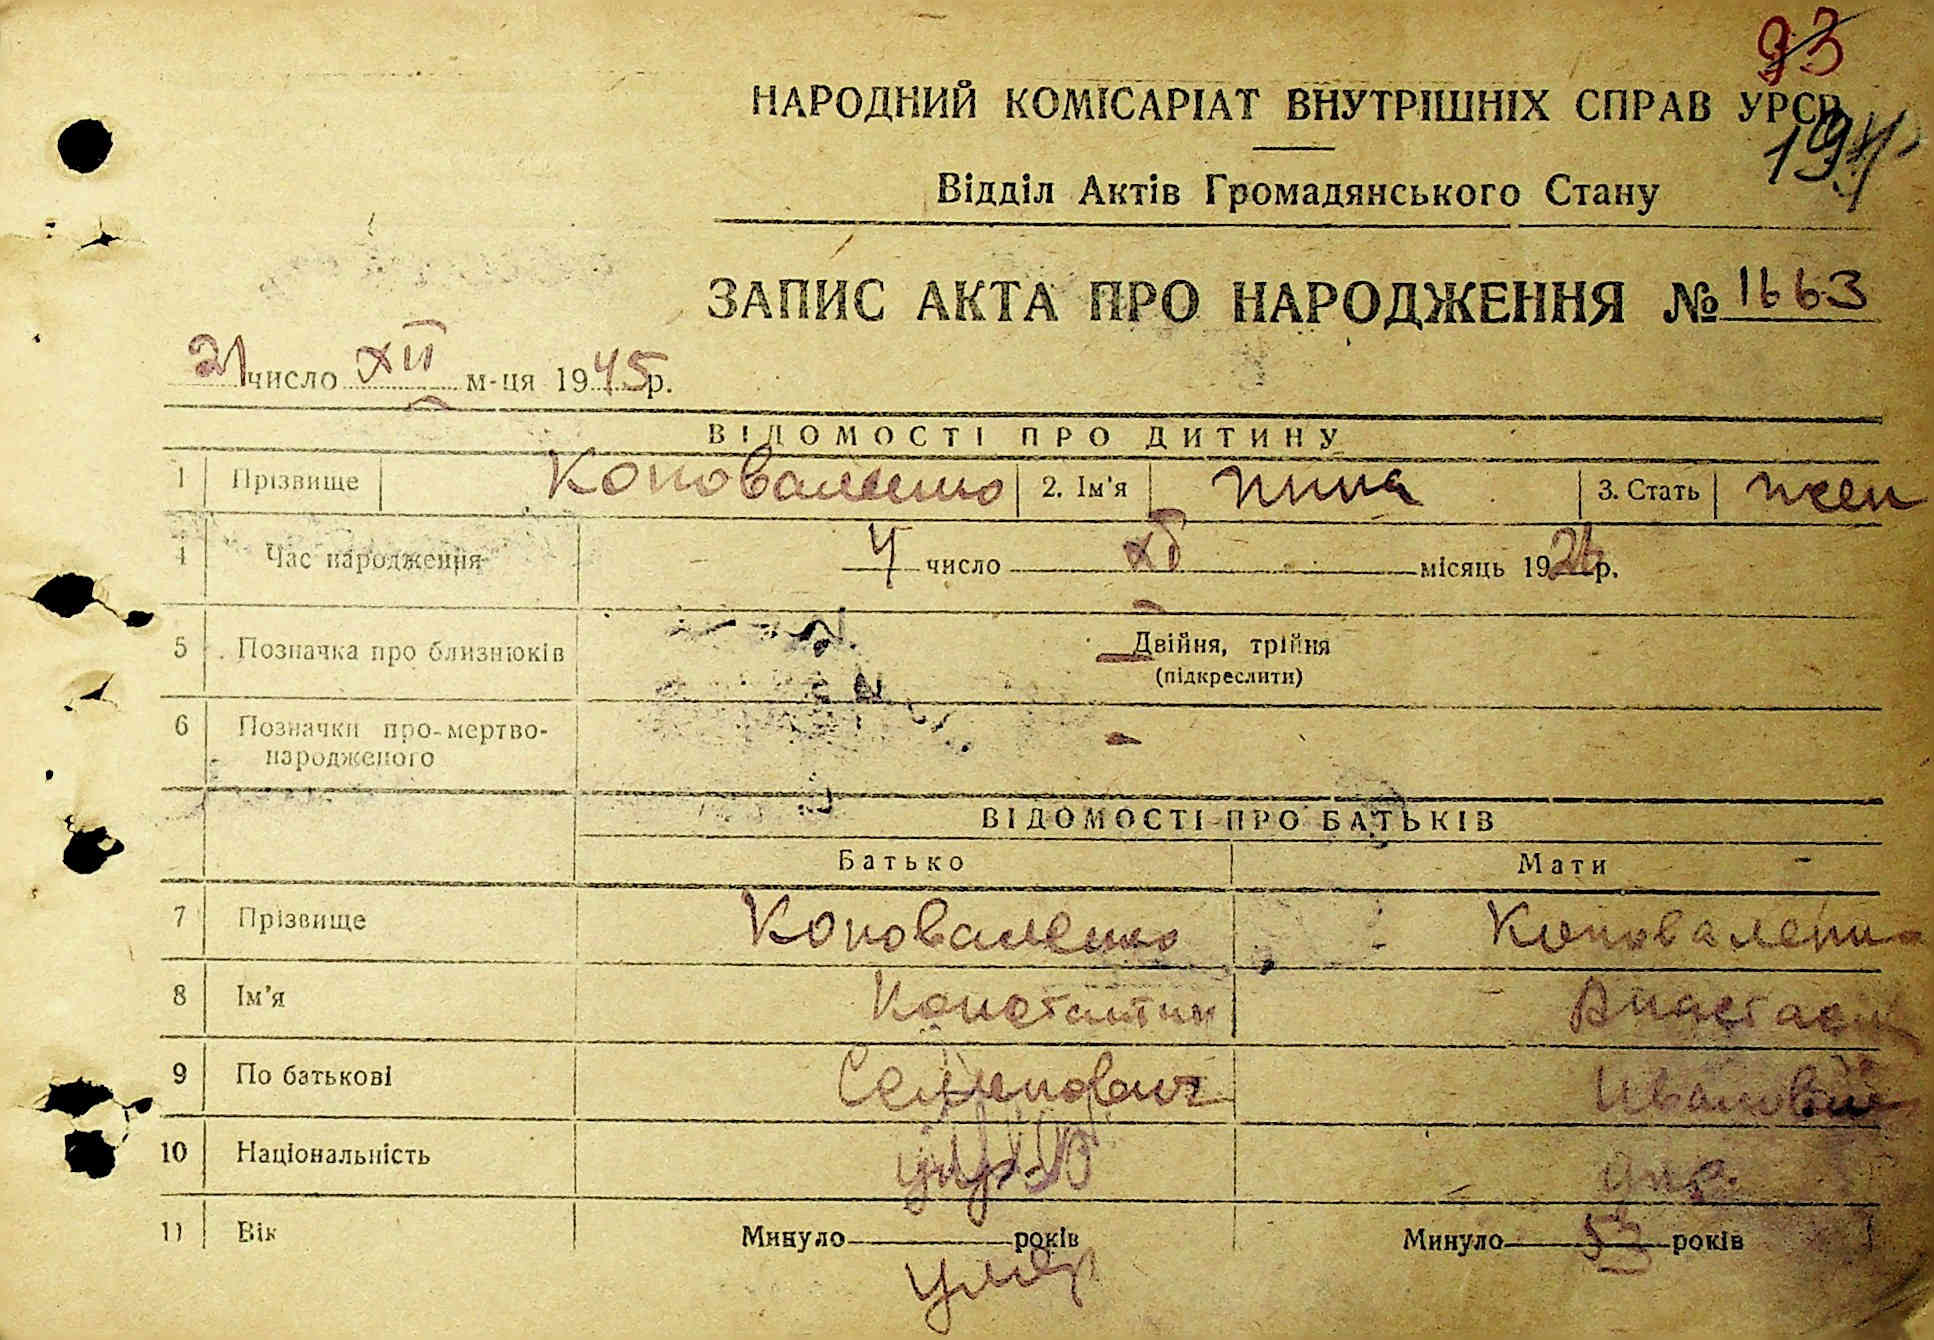 93
НАРОДНИЙ КОМІСАРІАТ ВНУТРІШНІХ СПРАВ УРСР
194
Відділ Актів Громадянського Стану
ЗАПИС АКТА ПРО НАРОДЖЕННЯ № 1663
21 число XII м-ця 1945 р.
ВІДОМОСТІ ПРО ДИТИНУ
1 Прізвище Коноваленко 2. Ім'я Нина 3. Стать жен
4 Час народження 4 число XI місяць 1926 р.
5 Позначка про близнюків Двійня, трійня
(підкреслити)
6 Позначки про мертво-
народженого
ВІДОМОСТІ ПРО БАТЬКІВ
Батько Мати
7 Прізвище Коноваленко Коноваленко
8 Ім'я Константин Анастасия
9 По батькові Семенович Ивановна
10 Національність укр укр
11 Вік Минуло років Минуло 53 років
умер